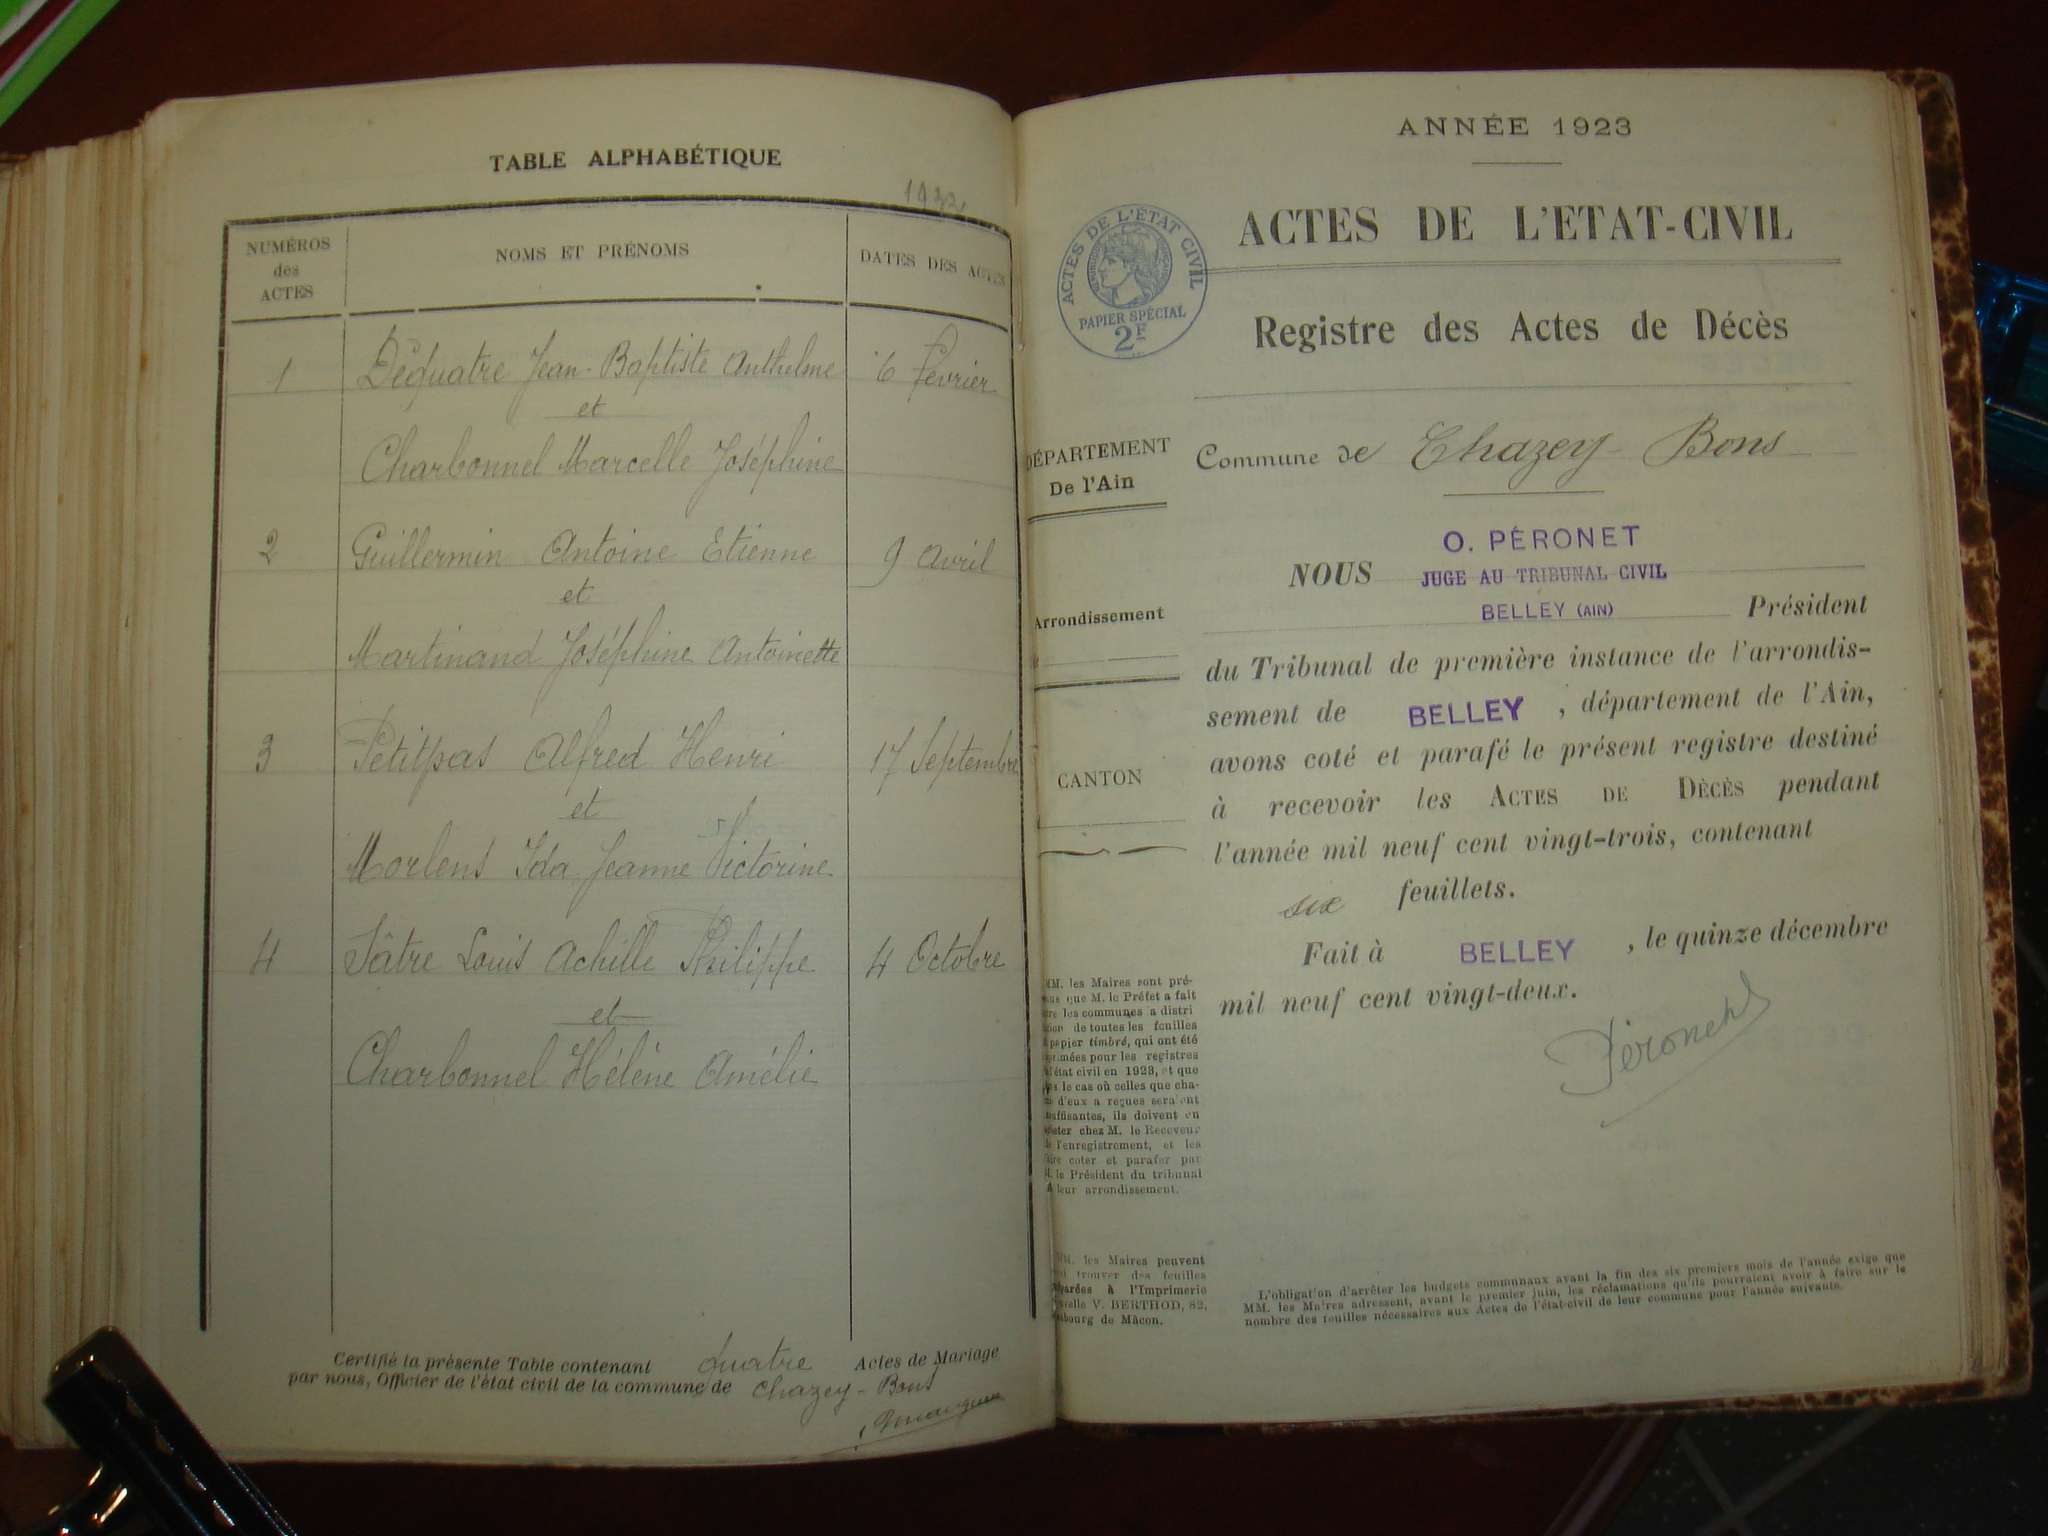 TABLE ALPHABÉTIQUE
NUMÉROS
des
ACTES
NOMS ET PRÉNOMS
DATES DES ACTES
1 Déquatre Jean-Baptiste Anthelme 6 Février
et
Charbonnel Marcelle Joséphine
2 Guillermin Antoine Etienne 9 Avril
et
Martinand Joséphine Antoinette
3 Petitpas Alfred Henri 17 Septembre
et
Morlens Ida Jeanne Victorine
4 Jâtre Louis Achille Philippe 4 Octobre
et
Charbonnel Hélène Amélie
Certifié la présente Table contenant quatre Actes de Mariage
par nous, Officier de l'état civil de la commune de Chazey-Bons
ANNÉE 1923
ACTES DE L'ÉTAT CIVIL
PAPIER SPÉCIAL
2F
ACTES DE L'ETAT-CIVIL
Registre des Actes de Décès
DÉPARTEMENT
De l'Ain
Arrondissement
CANTON
Commune de Chazey-Bons
O. PÉRONET
NOUS JUGE AU TRIBUNAL CIVIL
BELLEY (AIN) Président
du Tribunal de première instance de l'arrondis-
sement de BELLEY, département de l'Ain,
avons coté et parafé le présent registre destiné
à recevoir les ACTES DE DÈCÈS pendant
l'année mil neuf cent vingt-trois, contenant
six feuillets.
Fait à BELLEY, le quinze décembre
mil neuf cent vingt-deux.
Péronet
MM. les Maires sont pré-
que M. le Préfet a fait
les communes a distri
de toutes les feuilles
papier timbré, qui ont été
pour les registres
l'état civil en 1923, et que
le cas où celles que cha-
d'eux a reçues seraient
insuffisantes, ils doivent en
chez M. le Receveur
l'enregistrement, et les
coter et parafer par
le Président du tribunal
leur arrondissement.
MM. les Maires peuvent
trouver des feuilles
à l'Imprimerie
V. BERTHOD, 82,
de Mâcon.
L'obligation d'arrêter les budgets communaux avant la fin des six premiers mois de l'année exige que
MM. les Maires adressent, avant le premier juin, les réclamations qu'ils pourraient avoir à faire sur le
nombre des feuilles nécessaires aux Actes de l'état-civil de leur commune pour l'année suivante.